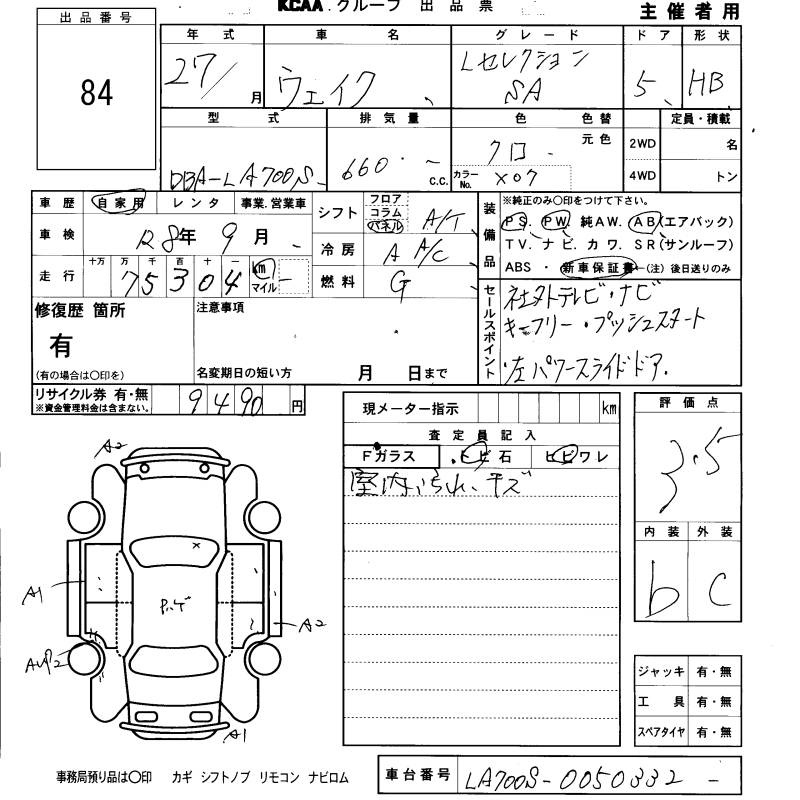 KCAA.グループ 出品票
主催者用
出品番号
84
年式 車名 グレード ドア 形状
27/ 月 ウェイク Lセレクション SA 5 HB
型式 排気量 色 色替 元色 定員・積載
DBA-LA700S 660 c.c. クロ 2WD 名
カラーNo. X07 4WD トン
車歴 自家用 レンタ 事業.営業車
車検 R8年 9月
走行 十万 万 千 百 十 一
75304 km マイル
シフト フロア コラム パネル A/T
冷房 A A/C
燃料 G
装備品 ※純正のみ○印をつけて下さい。
PS. PW. 純AW. AB(エアバック)
TV. ナビ. カワ. SR(サンルーフ)
ABS・新車保証書(注)後日送りのみ
修復歴 箇所
有
(有の場合は○印を)
注意事項
名変期日の短い方 月 日まで
セールスポイント
社外テレビ・ナビ
キーフリー・プッシュスタート
左パワースライドドア.
リサイクル券 有・無
※資金管理料金は含まない。
9490円
現メーター指示 km
査定員記入
Fガラス トビ石 ヒビワレ
室内汚れ、キズ
評価点
3.5
内装 外装
b C
A2
A1
A2
A1
ジャッキ 有・無
工具 有・無
スペアタイヤ 有・無
事務局預り品は○印 カギ シフトノブ リモコン ナビロム
車台番号 LA700S-0050332